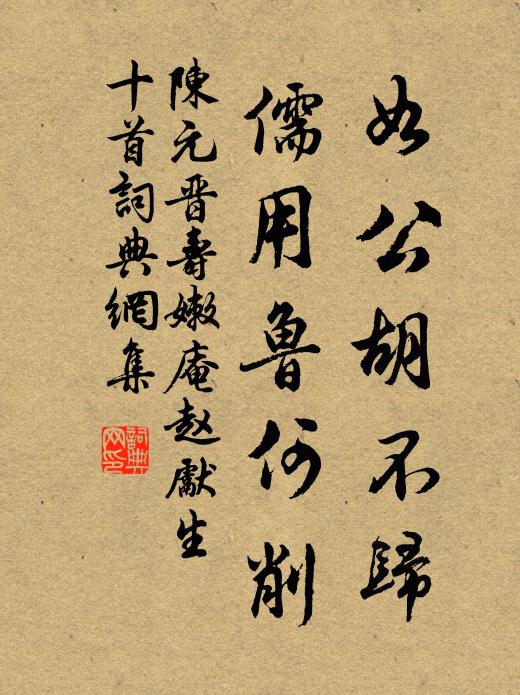 如公胡不歸
儒用魯何削
陳元晋壽嫩庵赵獻生
十首詞典網集
詞典
网印